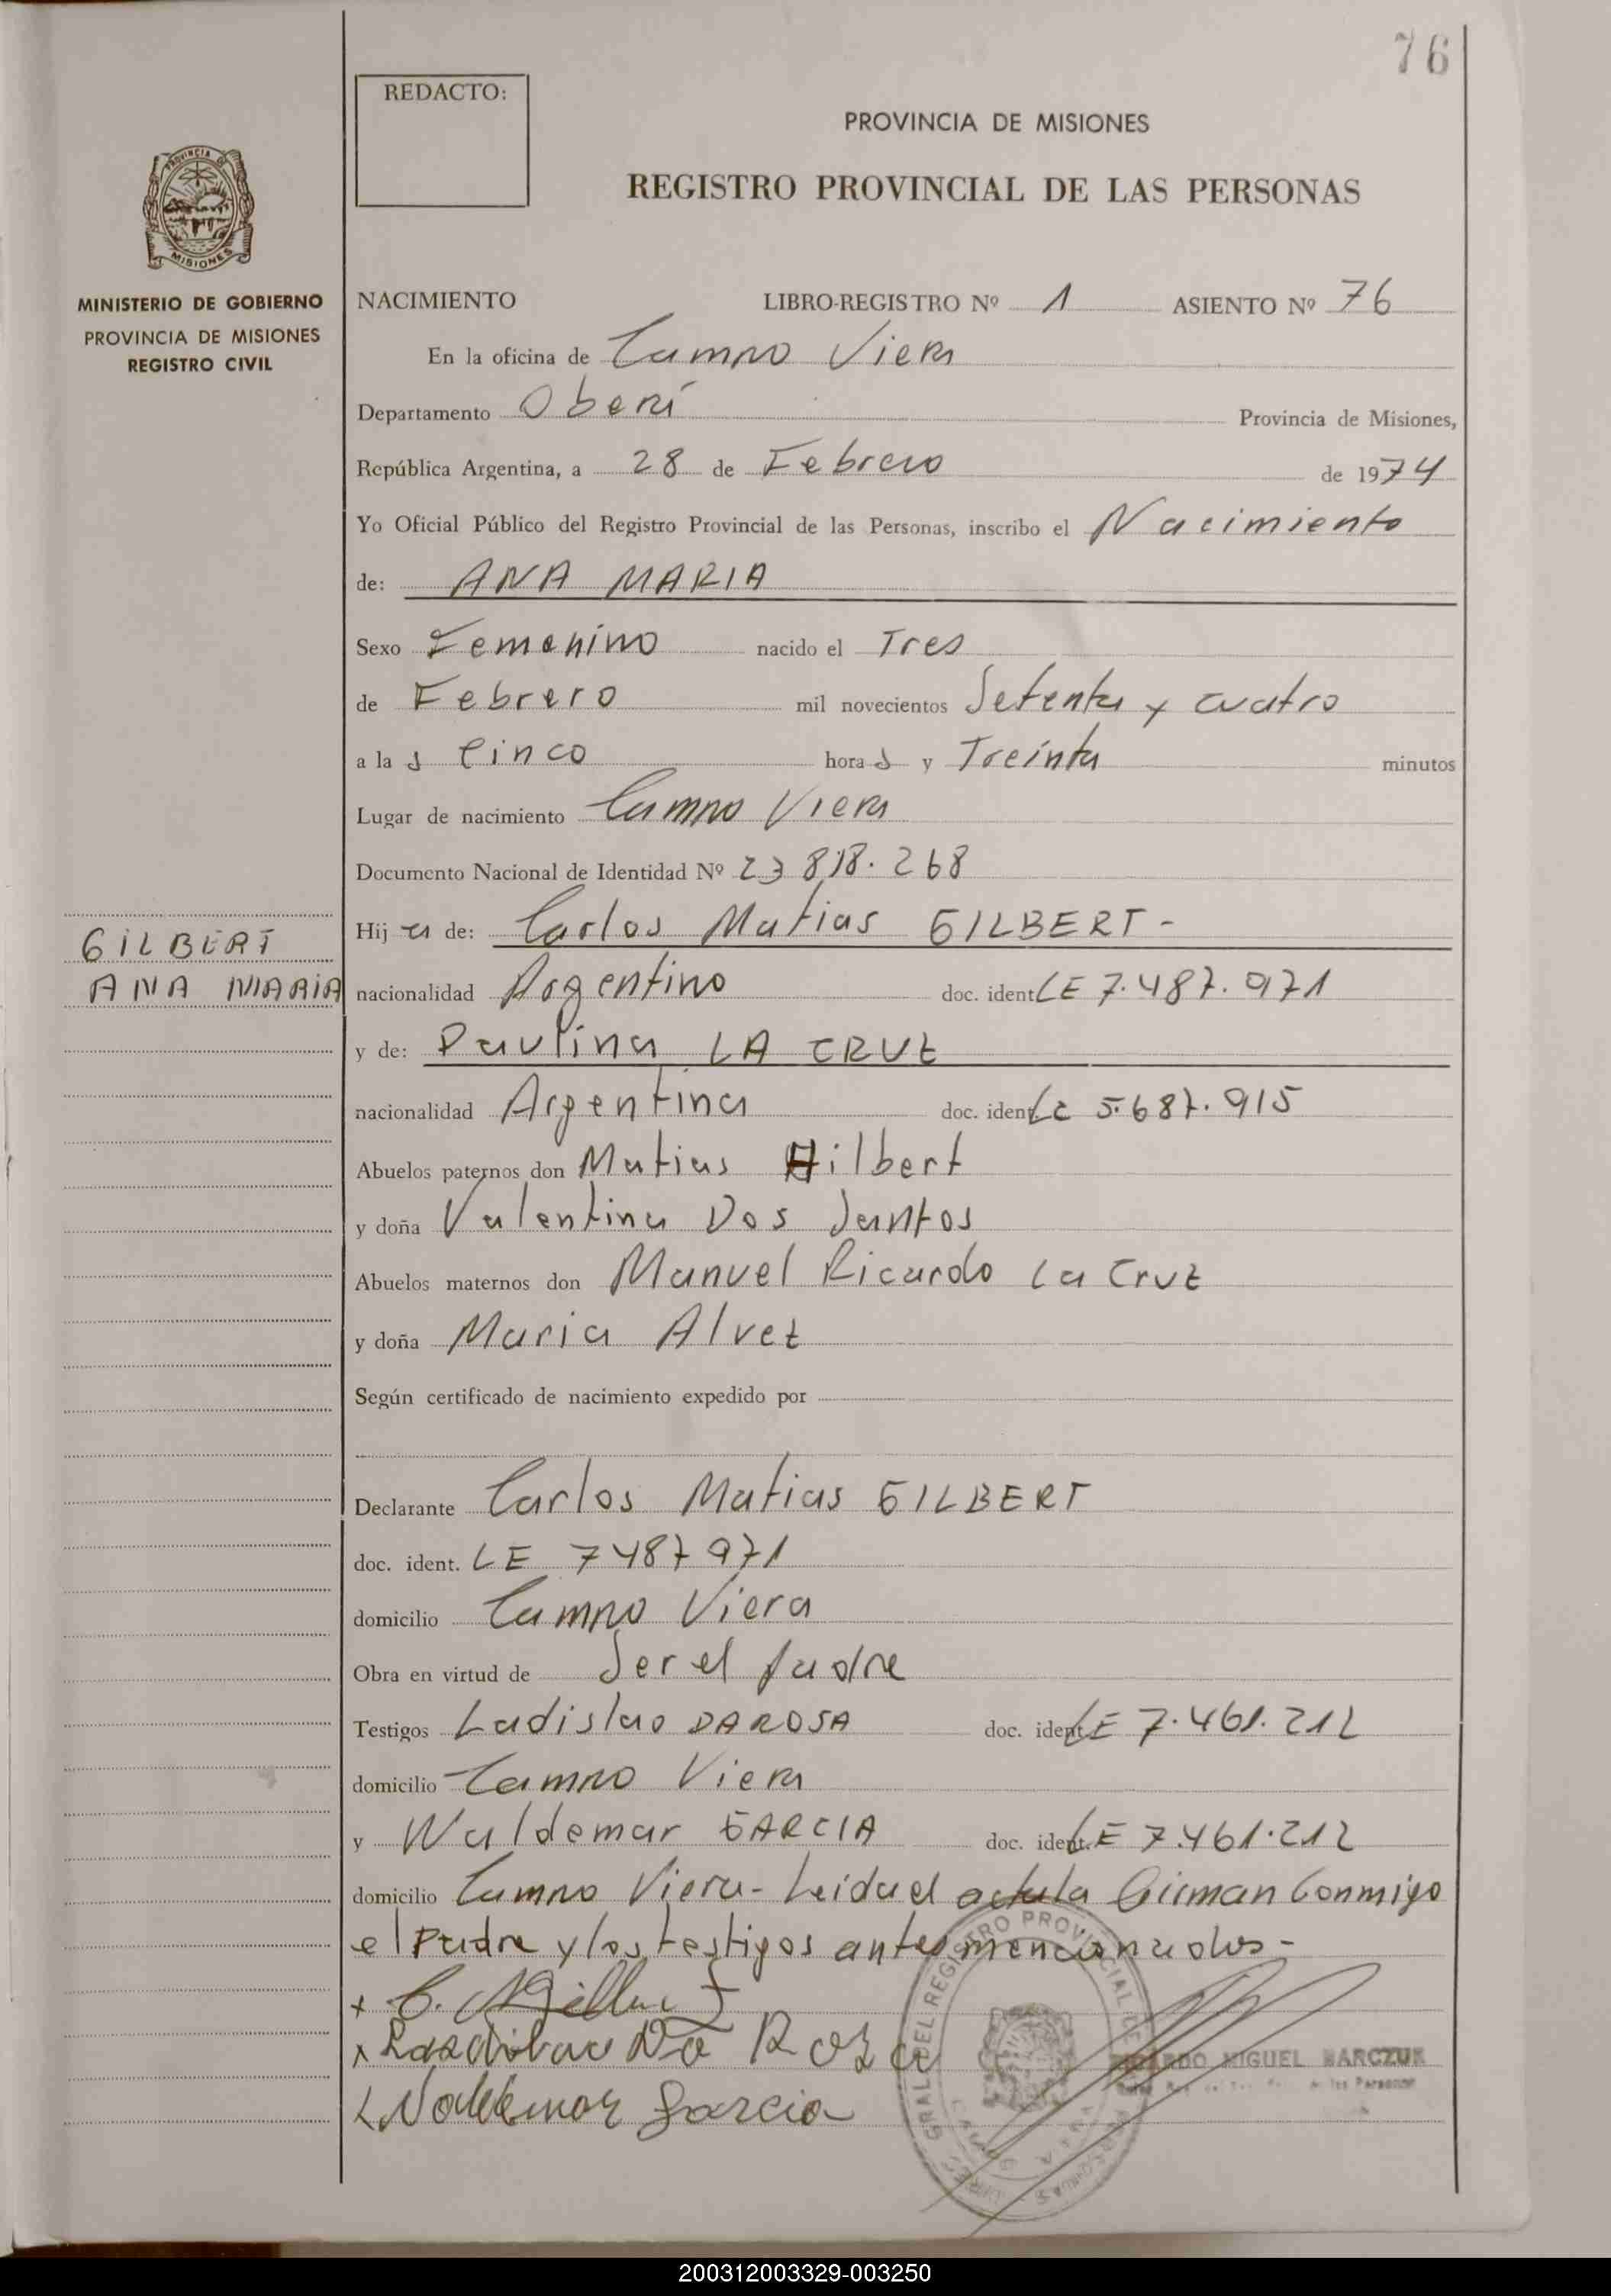 76
REDACTO:
PROVINCIA DE MISIONES
REGISTRO PROVINCIAL DE LAS PERSONAS
PROVINCIA DE
MISIONES
MINISTERIO DE GOBIERNO
PROVINCIA DE MISIONES
REGISTRO CIVIL
NACIMIENTO LIBRO-REGISTRO Nº 1 ASIENTO Nº 76
En la oficina de Campo Viera
Departamento Oberí Provincia de Misiones,
República Argentina, a 28 de Febrero de 1974
Yo Oficial Público del Registro Provincial de las Personas, inscribo el Nacimiento
de: ANA MARIA
Sexo Femenino nacido el Tres
de Febrero mil novecientos Setenta y cuatro
a la s Cinco hora s y Treinta minutos
Lugar de nacimiento Campo Viera
Documento Nacional de Identidad Nº 23 818.268
GILBERT
ANA MARIA
Hij a de: Carlos Matias GILBERT -
nacionalidad Argentino doc. ident. LE 7.487.971
y de: Paulina LA CRUZ
nacionalidad Argentina doc. ident. LC 5.687.915
Abuelos paternos don Matias Hilbert
y doña Valentina Dos Santos
Abuelos maternos don Manuel Ricardo La Cruz
y doña Maria Alvez
Según certificado de nacimiento expedido por
Declarante Carlos Matias GILBERT
doc. ident. LE 7487971
domicilio Campo Viera
Obra en virtud de Ser el padre
Testigos Ladislao DAROSA doc. ident. LE 7.461.212
domicilio Campo Viera
y Waldemar GARCIA doc. ident. LE 7.461.212
domicilio Campo Viera - Leida el acta la Firman Conmigo
el Padre y los testigos antes mencionados -
x C. M
x Ladislao Da Roza
x Valdemar Garcia
REGISTRO PROVINCIAL DE
MIGUEL BARCZUK
200312003329-003250